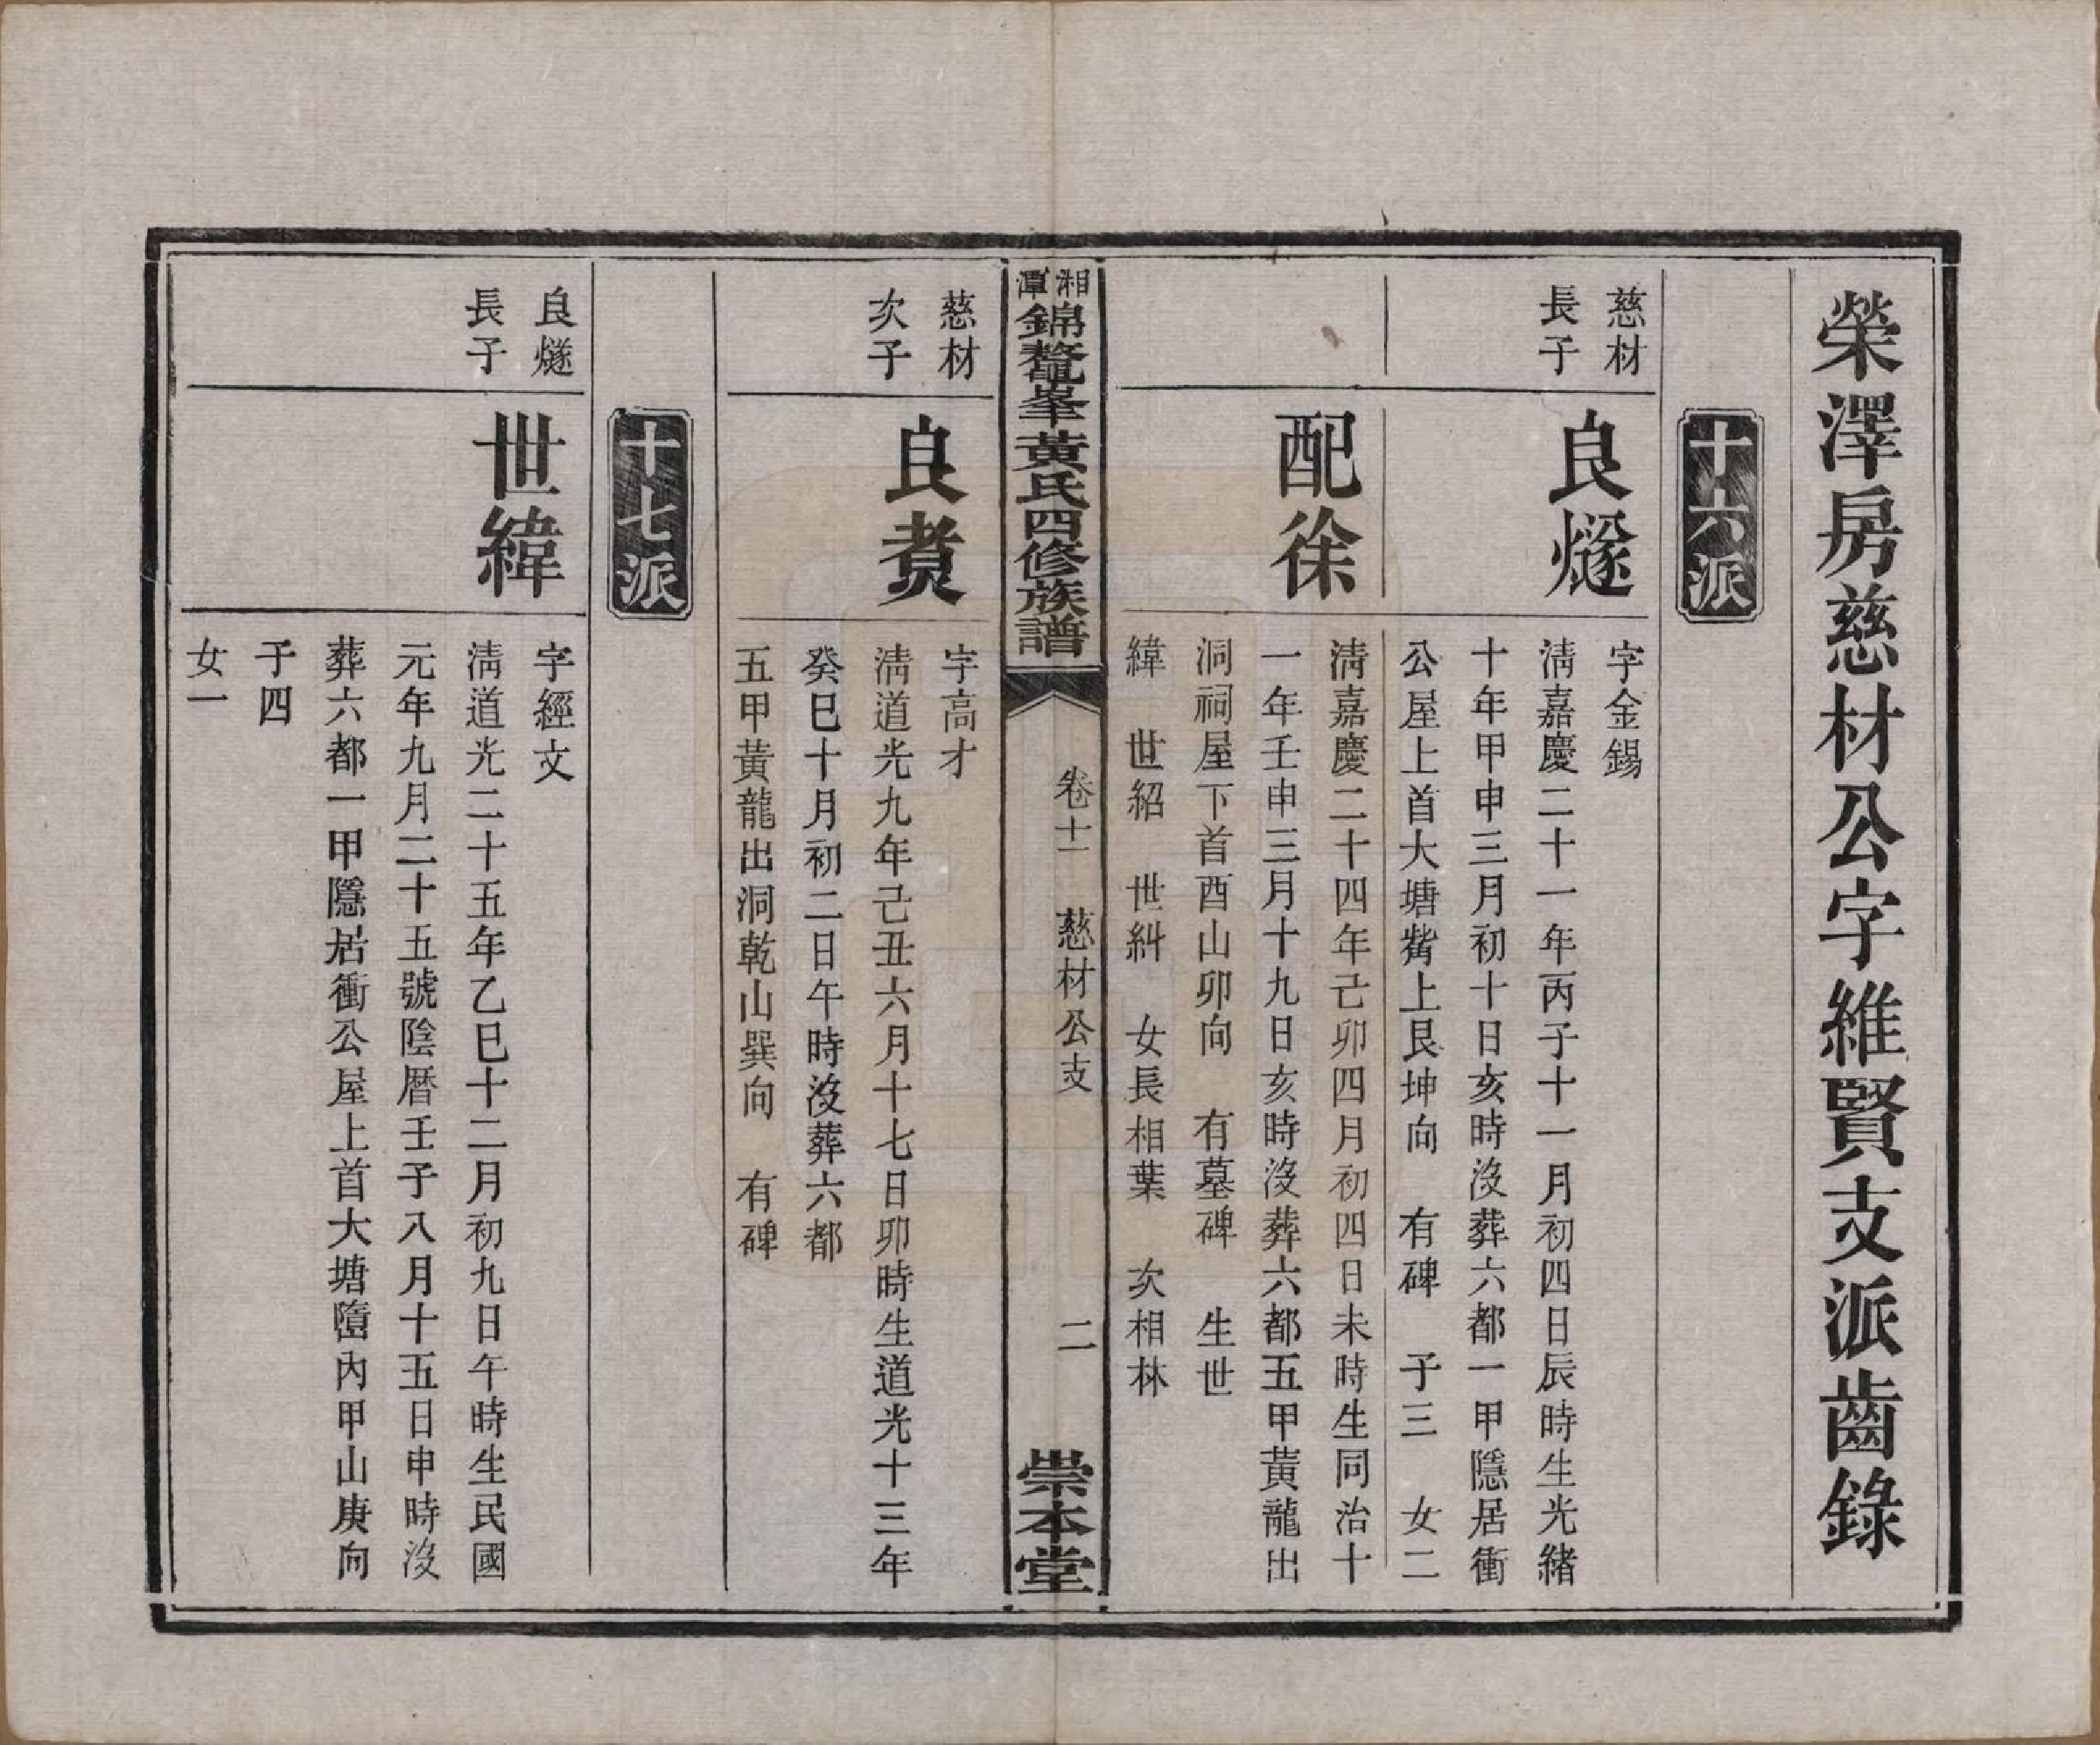 榮澤房慈材公字維賢支派齒錄
十六派
慈材
長子
良燧
字金錫
淸嘉慶二十一年丙子十一月初四日辰時生光緖
十年甲申三月初十日亥時沒葬六都一甲隱居衝
公屋上首大塘觜上艮坤向 有碑 子三 女二
配徐
淸嘉慶二十四年己卯四月初四日未時生同治十
一年壬申三月十九日亥時沒葬六都五甲黃龍出
洞祠屋下首酉山卯向 有墓碑 生世
緯 世紹 世糾 女長相葉 次相林
湘潭錦鰲峯黃氏四修族譜
卷十一 慈材公支 二
崇本堂
慈材
次子
良焘
字高才
淸道光九年己丑六月十七日卯時生道光十三年
癸巳十月初二日午時沒葬六都
五甲黃龍出洞乾山巽向 有碑
十七派
良燧
長子
世緯
字經文
淸道光二十五年乙巳十二月初九日午時生民國
元年九月二十五號陰曆壬子八月十五日申時沒
葬六都一甲隱居衝公屋上首大塘墮內甲山庚向
子四
女一